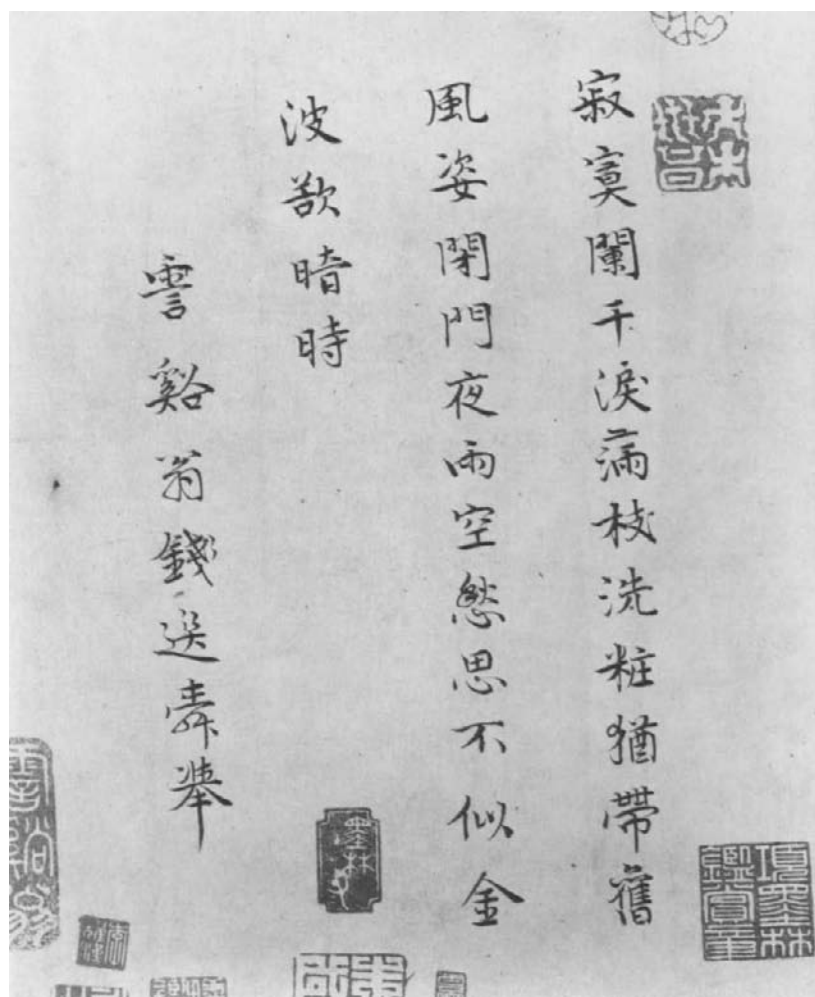 寂寞闌干淚滿枝洗粧猶帶舊
風姿閉門夜雨空愁思不似金
波欲暗時
霅谿翁錢選舜舉
項墨林
鑑賞章